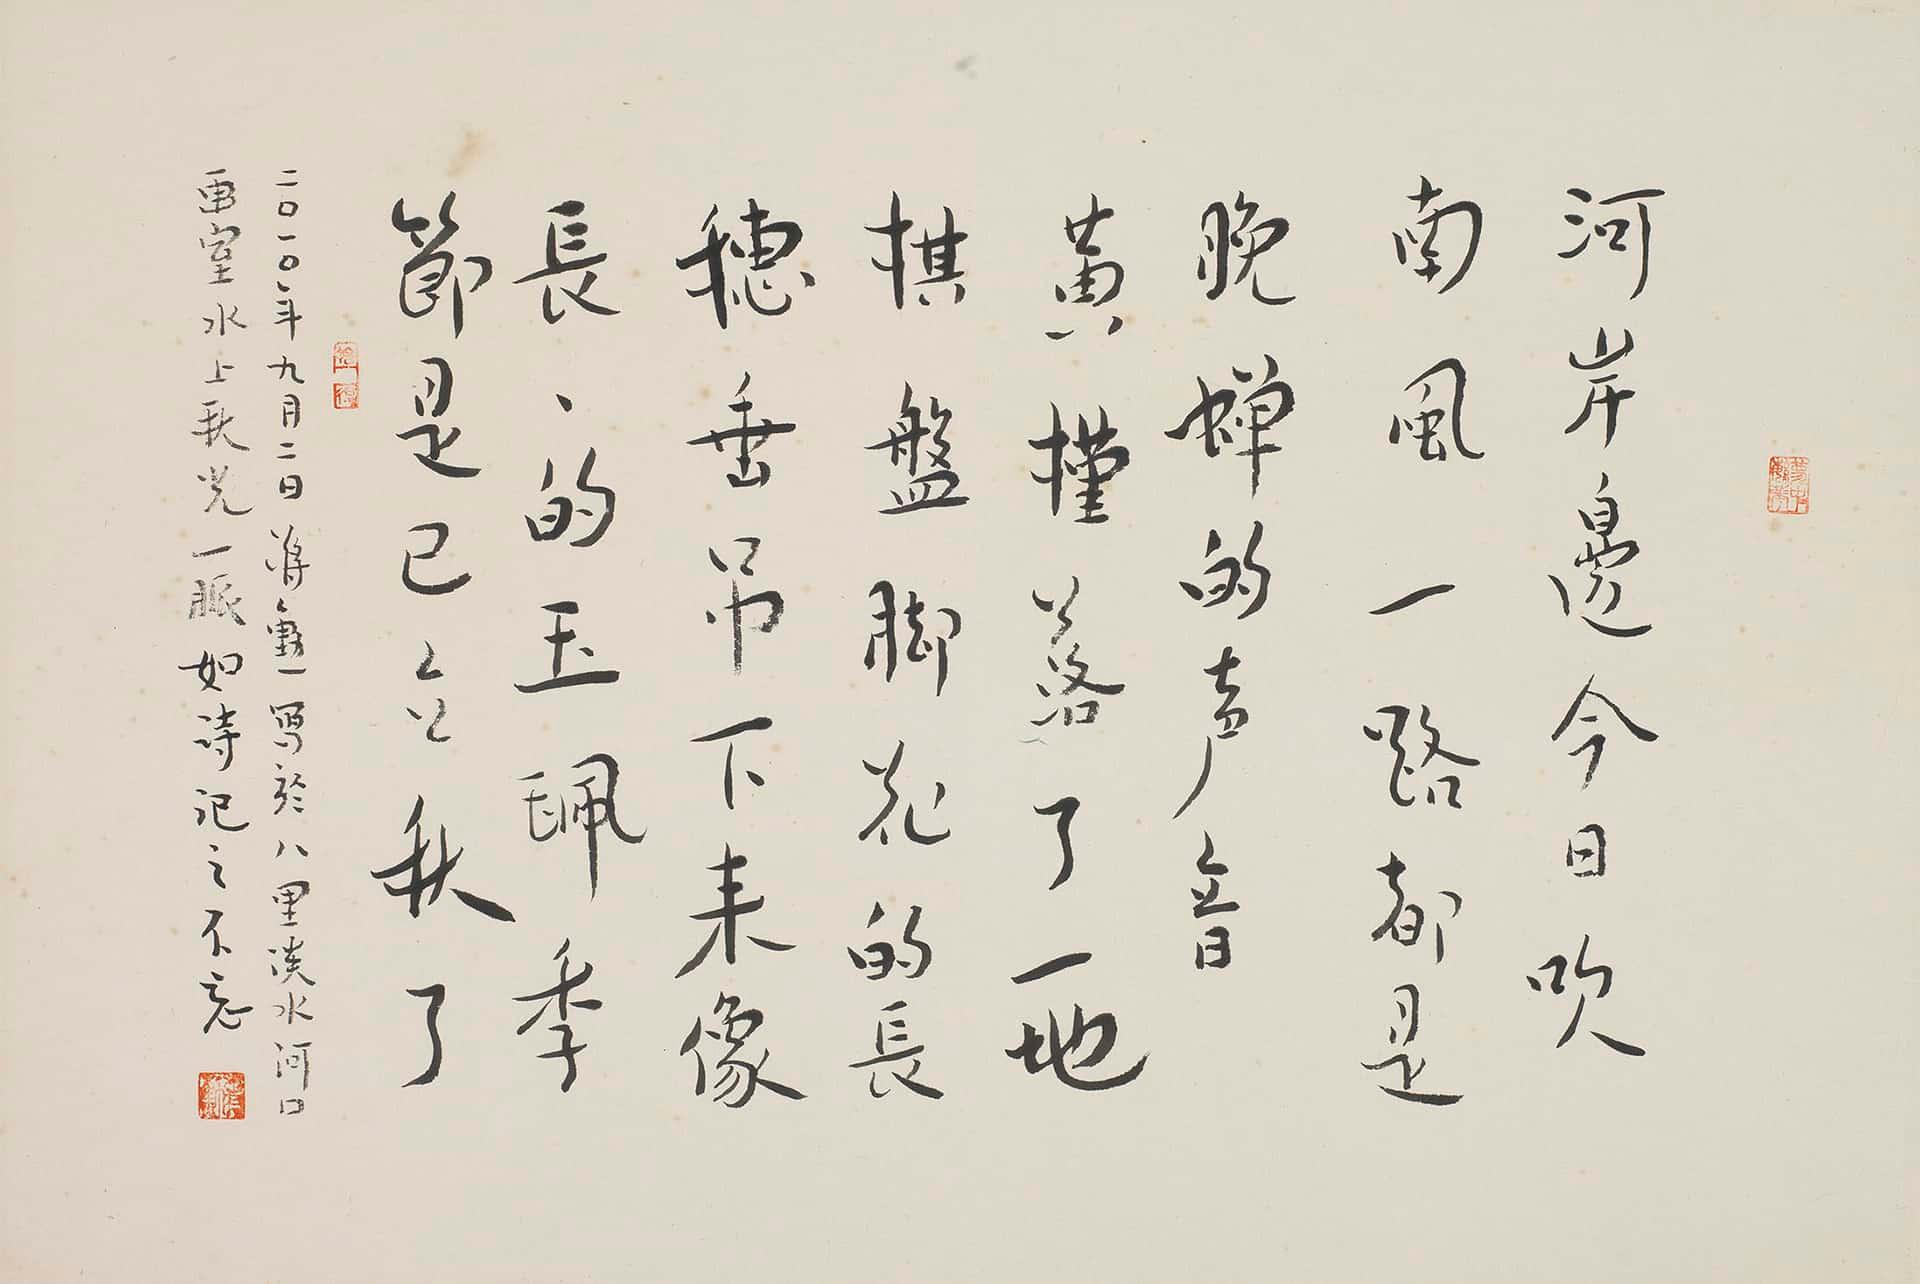 河岸邊今日吹
南風一路都是
晚蟬的声音
黃槿落了一地
棋盤脚花的長
穗垂吊下来像
長、的玉珮季
節是已立秋了
二〇一〇年九月二日蔣勳寫於八里淡水河口
画室水上秋光一脈如詩記之不忘